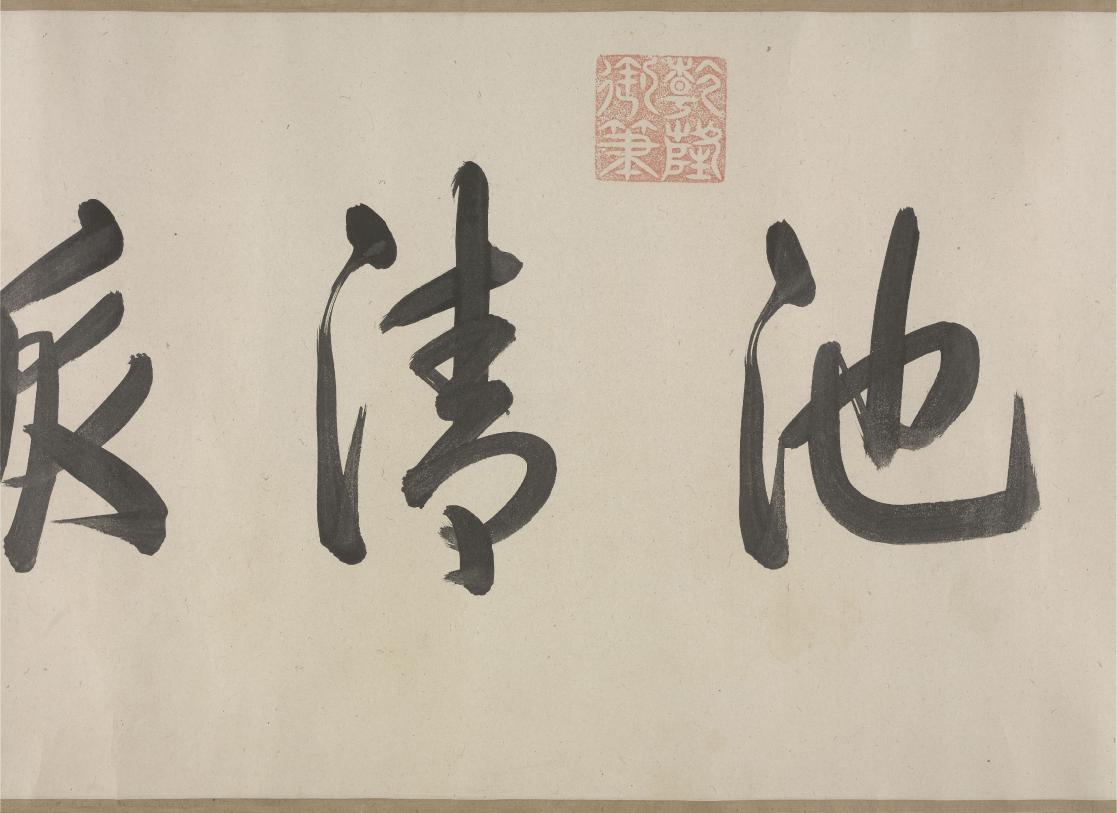 池清
乾隆
御筆